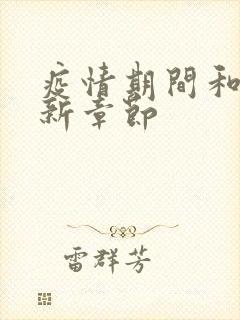 疫情期間和
新章節
雷群芳